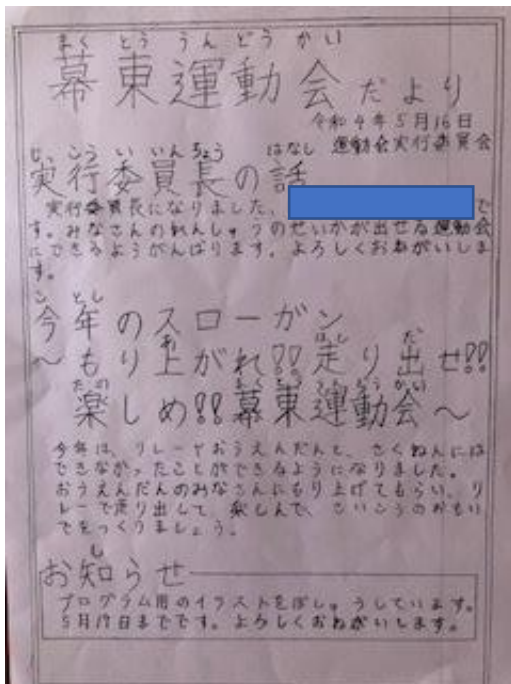 まくとううんどうかい
幕東運動会だより
令和4年5月16日
運動会実行委員会
じっこういいんちょう はなし
実行委員長の話
実行委員長になりました、 で
す。みなさんのれんしゅうのせいかが出せる運動会
にできるようがんばります。よろしくおねがいしま
す。
ことし
今年のスローガン
あ はし だ
～もり上がれ!!走り出せ!!
たの まくとううんどうかい
楽しめ!!幕東運動会～
今年は、リレーやおうえんだんと、さくねんには
できなかったことができるようになりました。
おうえんだんのみなさんにもり上げてもらい、リ
レーで走り出して、楽しんで、さいこうのおもい
でをつくりましょう。
し
お知らせ
プログラム用のイラストをぼしゅうしています。
5月19日までです。よろしくおねがいします。